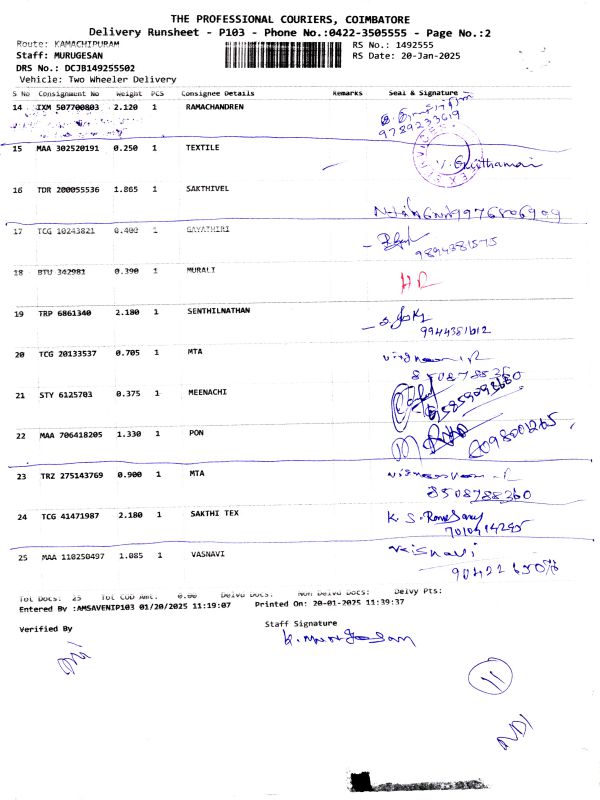 THE PROFESSIONAL COURIERS, COIMBATORE
Delivery Runsheet - P103 - Phone No.:0422-3505555 - Page No.:2
Route: KAMACHIPURAM RS No.: 1492555
Staff: MURUGESAN RS Date: 20-Jan-2025
DRS No.: DCJB149255502
Vehicle: Two Wheeler Delivery
S No Consignment No Weight PCS Consignee Details Remarks Seal & Signature
14 IXM 507700803 2.120 1 RAMACHANDREN
9789233619
15 MAA 302520191 0.250 1 TEXTILE
16 TDR 200055536 1.865 1 SAKTHIVEL
17 TCG 10243821 0.400 1 GAYATHIRI
9894381575
18 BTU 342981 0.390 1 MURALI
19 TRP 6861340 2.180 1 SENTHILNATHAN
9944381612
20 TCG 20133537 0.705 1 MTA
8508788360
21 STY 6125703 0.375 1 MEENACHI
22 MAA 706418205 1.330 1 PON
23 TRZ 275143769 0.900 1 MTA
8508788360
24 TCG 41471987 2.180 1 SAKTHI TEX K. S.
7010414245
25 MAA 110250497 1.085 1 VASNAVI Vaisnavi
Tot Docs: 25 Tot COD Amt: 0.00 Delvd Docs: Non Delvd Docs: Delvy Pts:
Entered By :AMSAVENIP103 01/20/2025 11:19:07 Printed On: 20-01-2025 11:39:37
Verified By Staff Signature
11